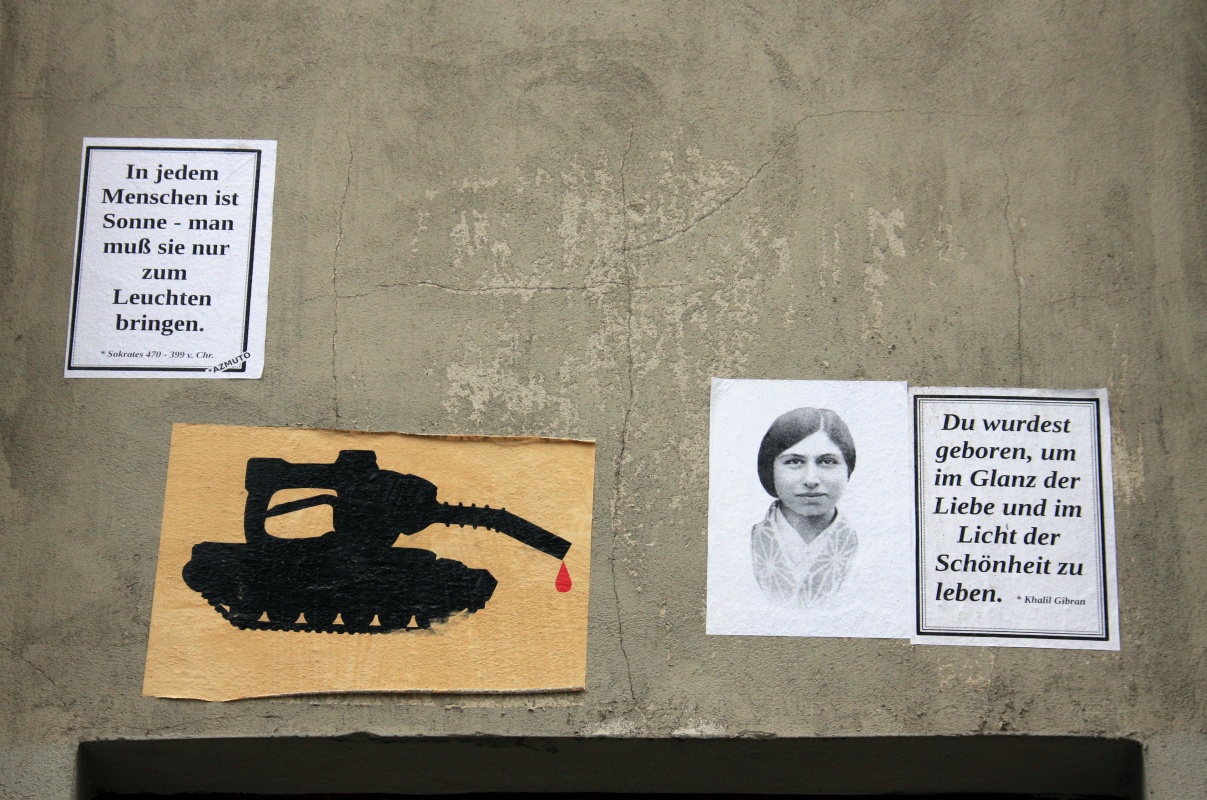 In jedem
Menschen ist
Sonne - man
muß sie nur
zum
Leuchten
bringen.
* Sokrates 470 - 399 v. Chr.
*AZMUTO
Du wurdest
geboren, um
im Glanz der
Liebe und im
Licht der
Schönheit zu
leben. * Khalil Gibran